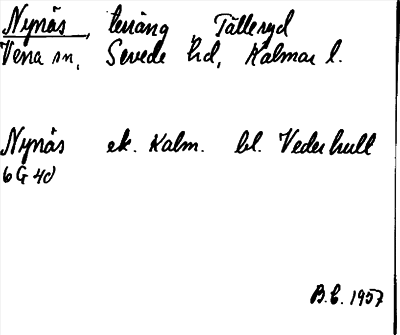 Nynäs, terräng Tälleryd
Vena sn, Sevede hd, Kalmar l.
Nynäs ek. Kalm. bl. Vederhult
6 G 4d
B.E. 1957